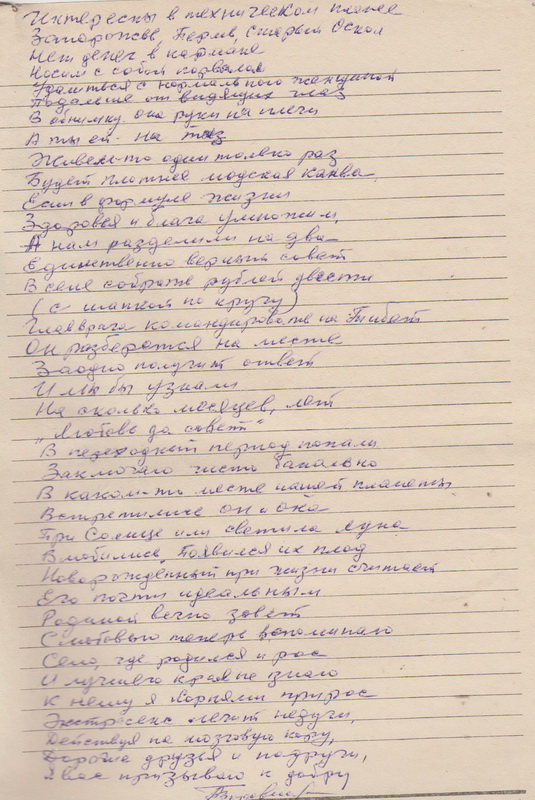 Интересны в техническом плане
Запорожье, Пермь, Старый Оскол
Нет денег в кармане
Носим с собой корвалол
с нормального женщиной
Подальше от видящих глаз
В обнимку она руки на плечи
А ты ей на таз
Живём-то один только раз
Будет плотнее людская канва
Если в формуле жизни
Здоровья и блага умножим,
А нам разделили на два
Единственно верный совет
В селе соберите рублей двести
(с шапкой по кругу)
Главврача командировать на Тибет
Он разберётся на месте
Заодно получит ответ
И мы бы узнали
На сколько месяцев, лет
"Любовь да совет"
В переходный период попали
Заключаю чисто банально
В каком-то месте нашей планеты
Встретились он и она
При Солнце или светила луна
Влюбились. Появился их плод
Новорожденный при жизни считаем
Его почти идеальным
Родиной вечно зовёт
С любовью теперь вспоминаю
Село, где родился и рос
И лучшего края не знаю
К нему я корнями прирос
Экстрасенс лечит недуги,
Действуя на мозговую кору,
Дорогие друзья и подруги,
Я вас призываю к добру